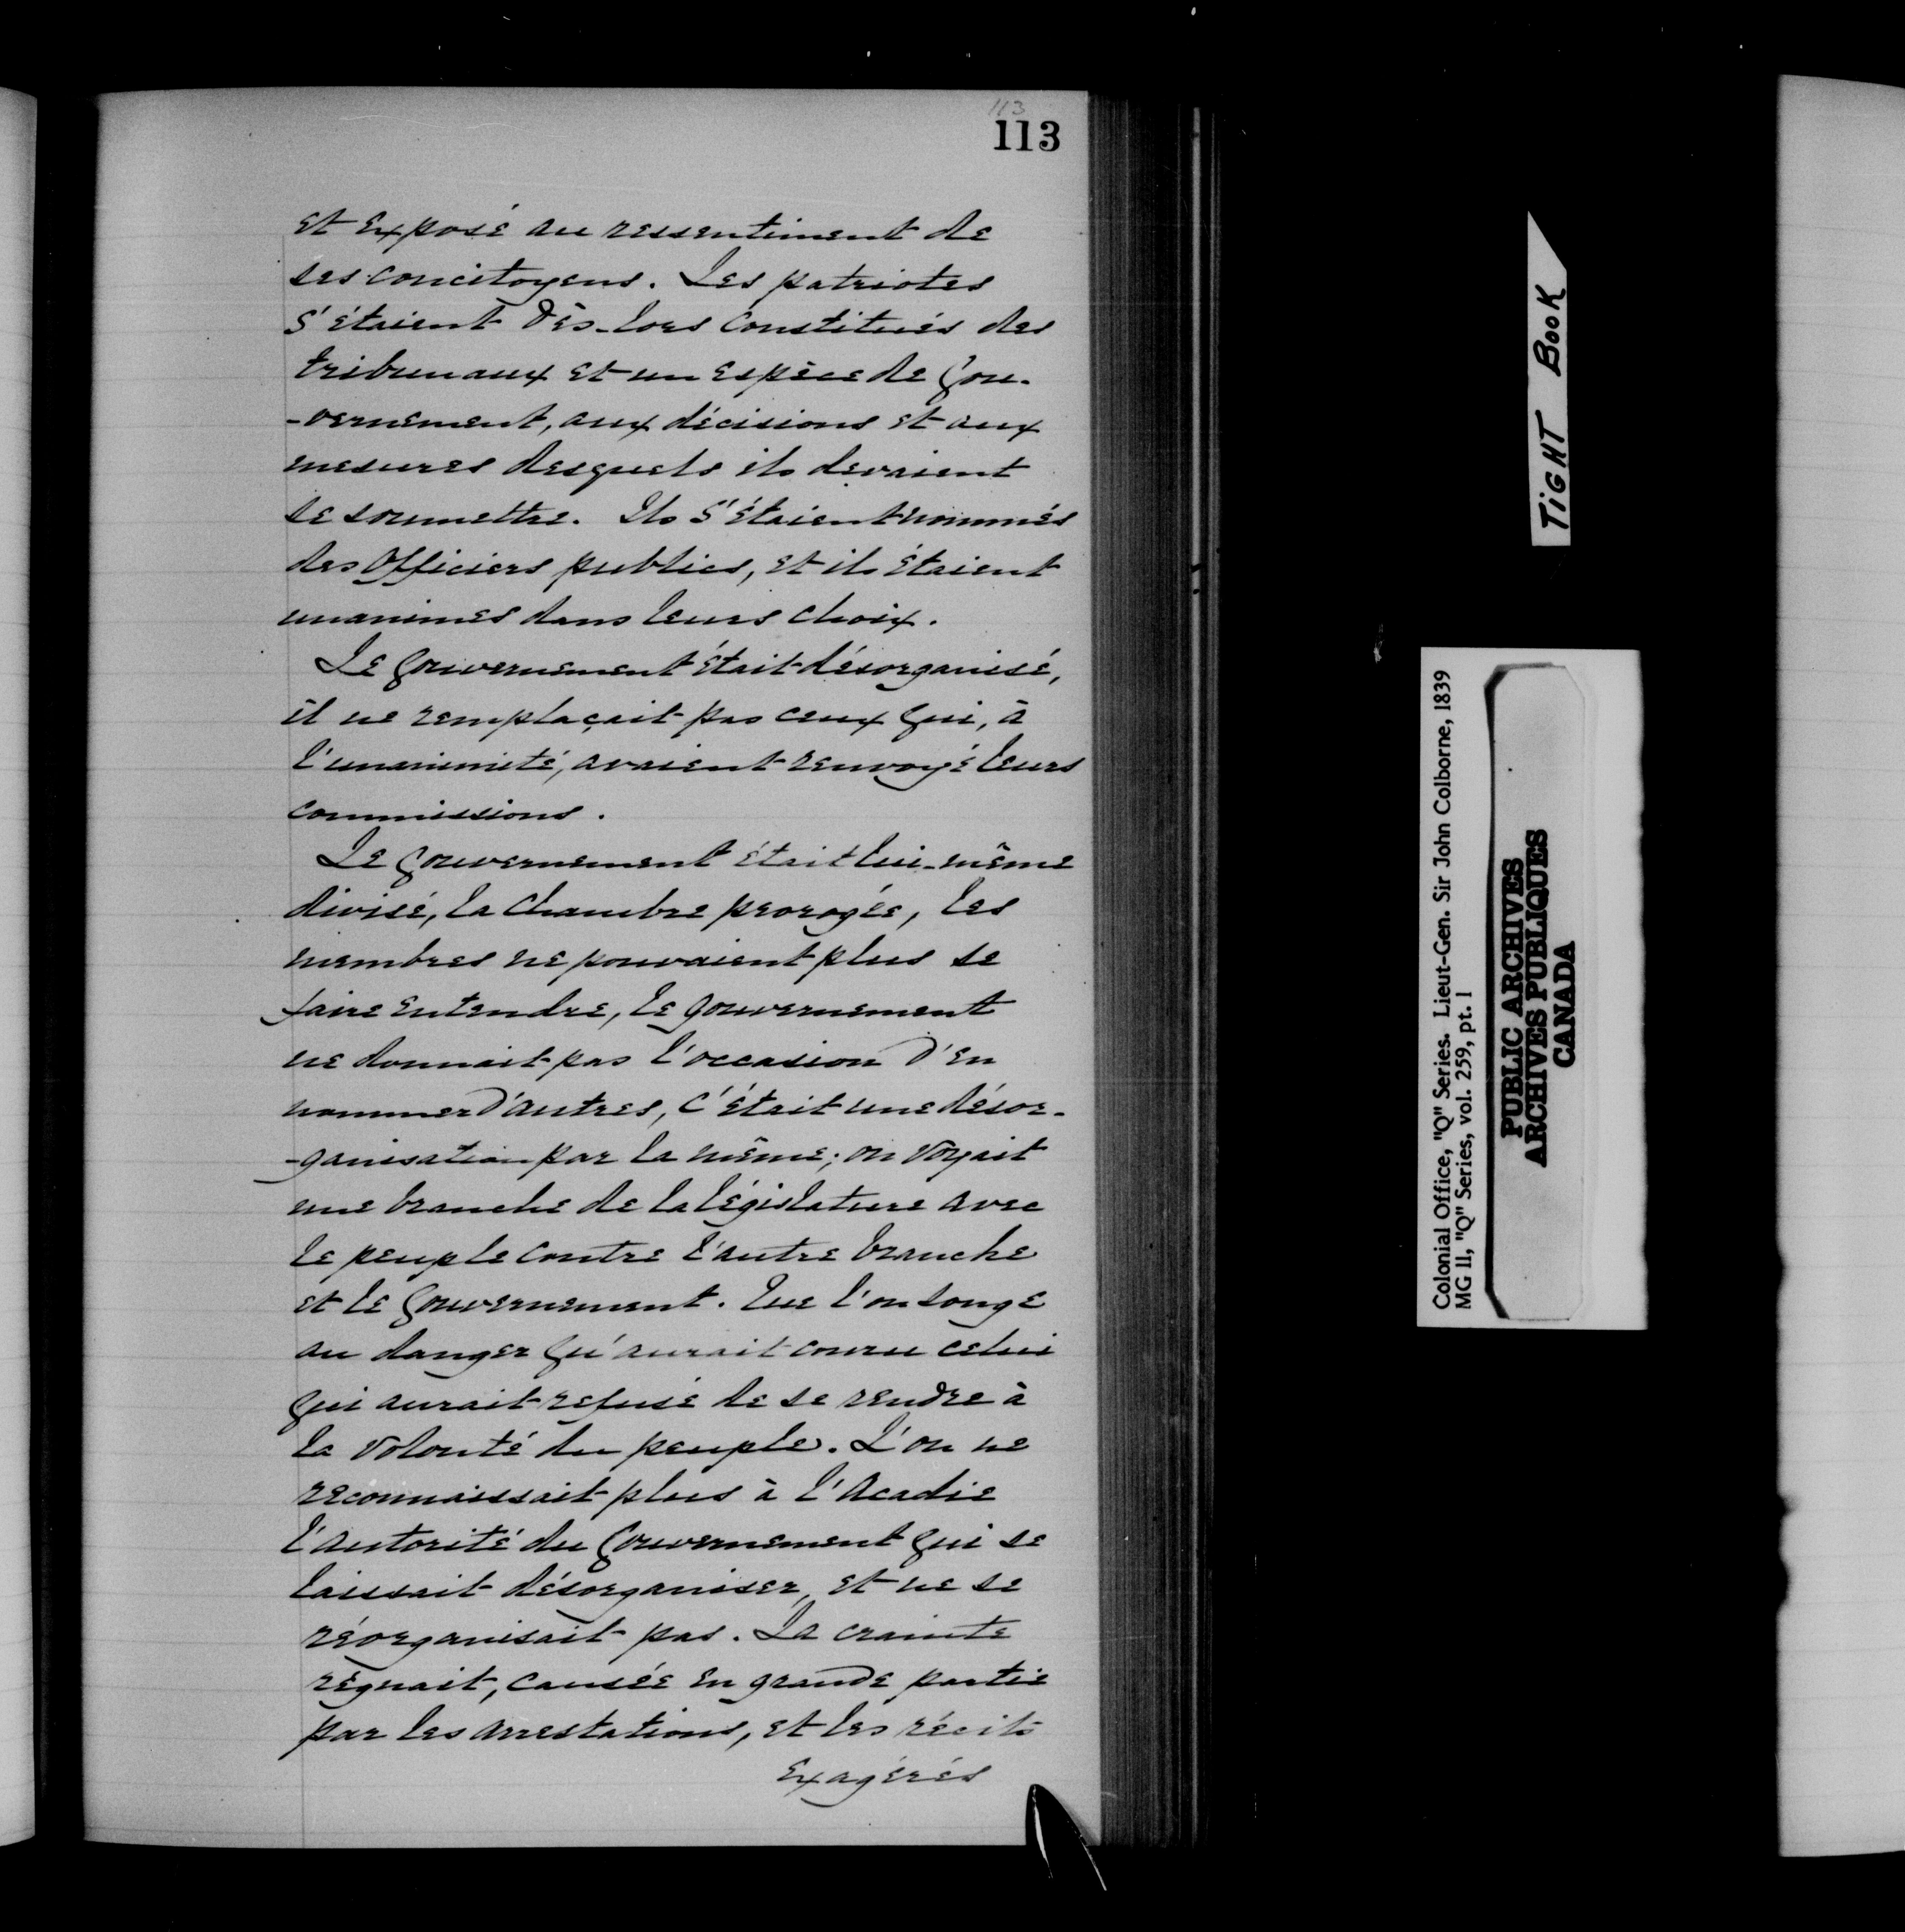 113
113
et exposé au ressentiment de
ses concitoyens. Les patriotes
s'étaient dès-lors constitués des
tribunaux et un espèce de Gou-
-vernement, aux décisions et aux
mesures desquels ils devaient
se soumettre. Ils s'étaient nommés
des Officiers publics, et ils étaient
unanimes dans leurs choix.
Le Gouvernement était désorganisé,
il ne remplaçait pas ceux qui, à
l'unanimité, avaient renvoyé leurs
commissions.
Le Gouvernement était lui-même
divisé, la Chambre prorogée, les
membres ne pouvaient plus se
faire entendre, le gouvernement
ne donnait pas l'occasion d'en
nommer d'autres, c'était une désor-
-ganisation par la même; on voyait
une branche de la législature avec
le peuple contre l'autre branche
et le Gouvernement. Que l'on songe
au danger qu'aurait couru celui
qui aurait refusé de se rendre à
la volonté du peuple. L'on ne
reconnaissait plus à l'Acadie
l'autorité du Gouvernement qui se
laissait désorganiser, et ne se
réorganisait pas. La crainte
régnait, causée en grande partie
par les arrestations, et les récits
exagérés
TIGHT BOOK
Colonial Office, "Q" Series. Lieut-Gen. Sir John Colborne, 1839
MG 11, "Q" Series, vol. 259, pt. 1
PUBLIC ARCHIVES
ARCHIVES PUBLIQUES
CANADA